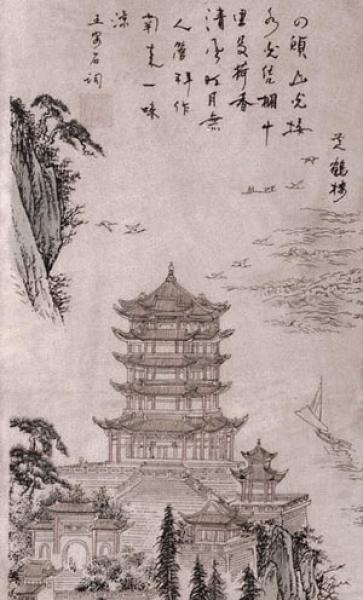 四顧山光接
水光凭欄十
里芰荷香
清風明月無
人管并作
南来一味
涼
王安石詞
黄鶴楼